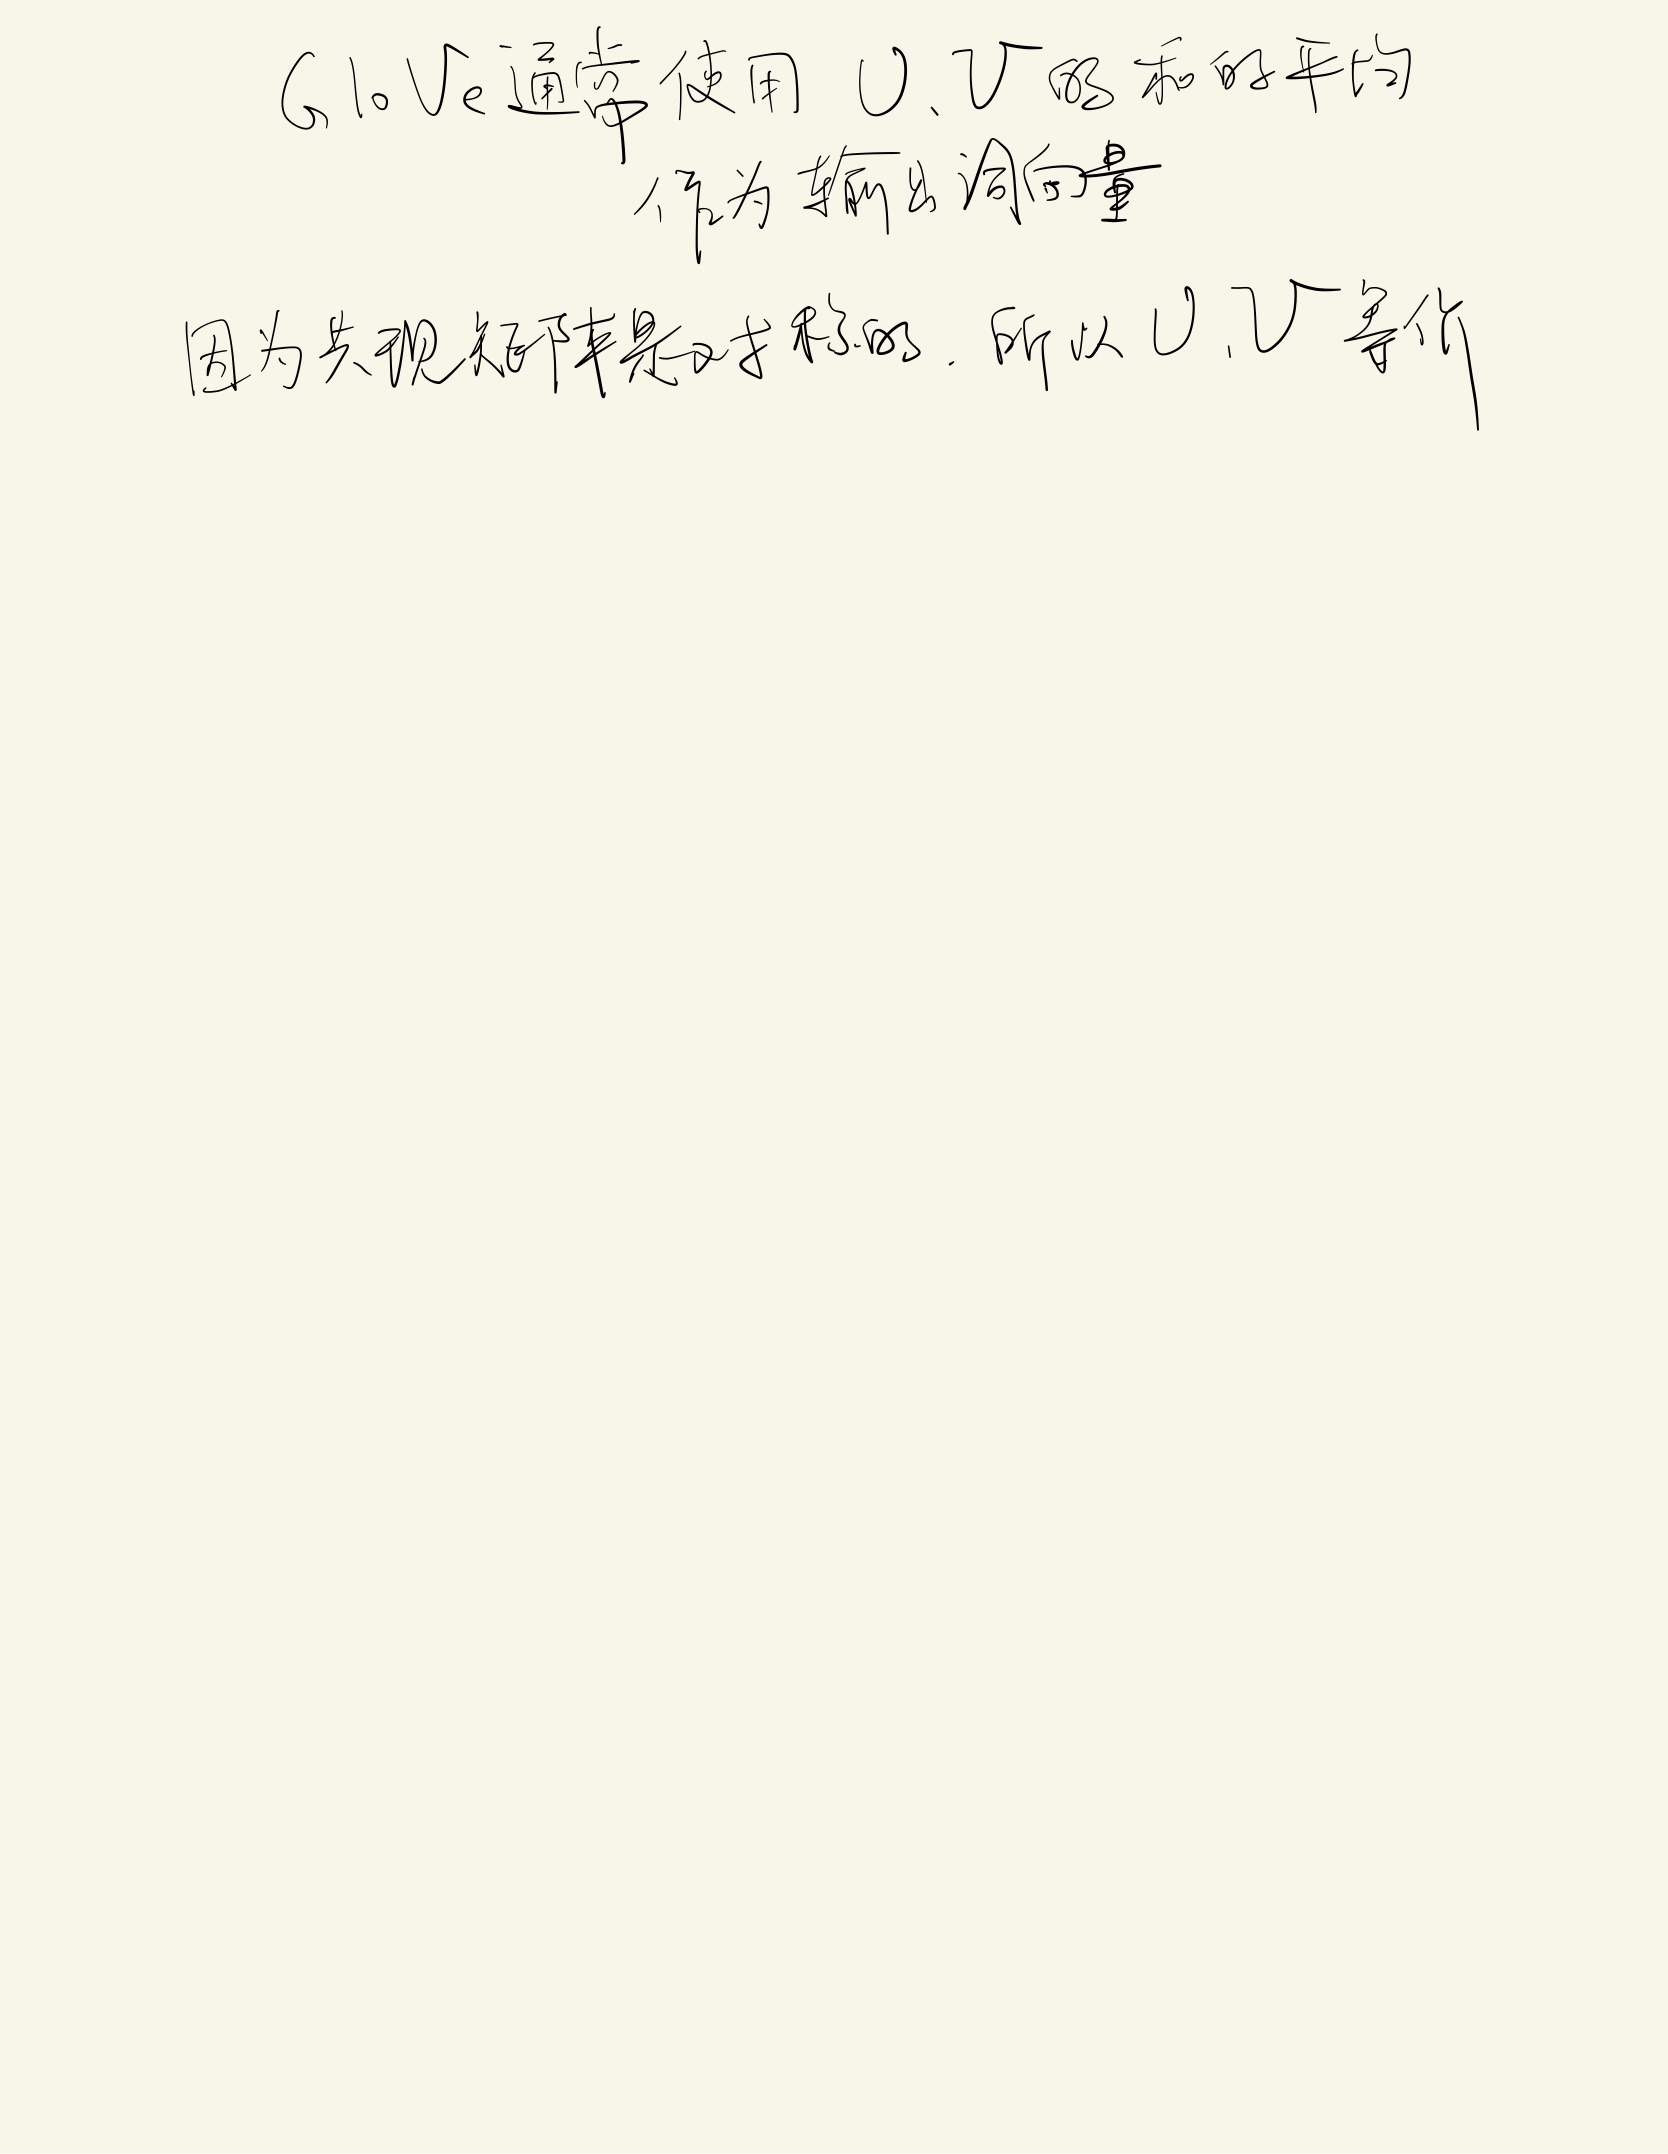 GloVe通常使用 U、V的和的平均
作为输出词向量
因为共现矩阵是对称的，所以U、V等价